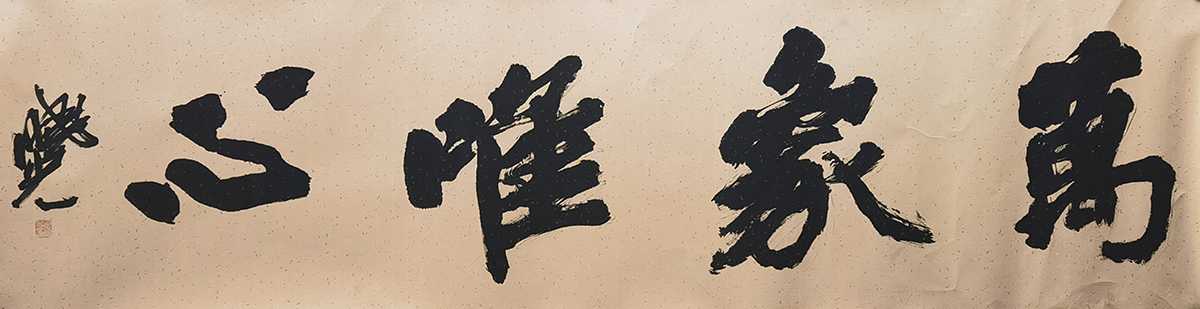 萬象唯心